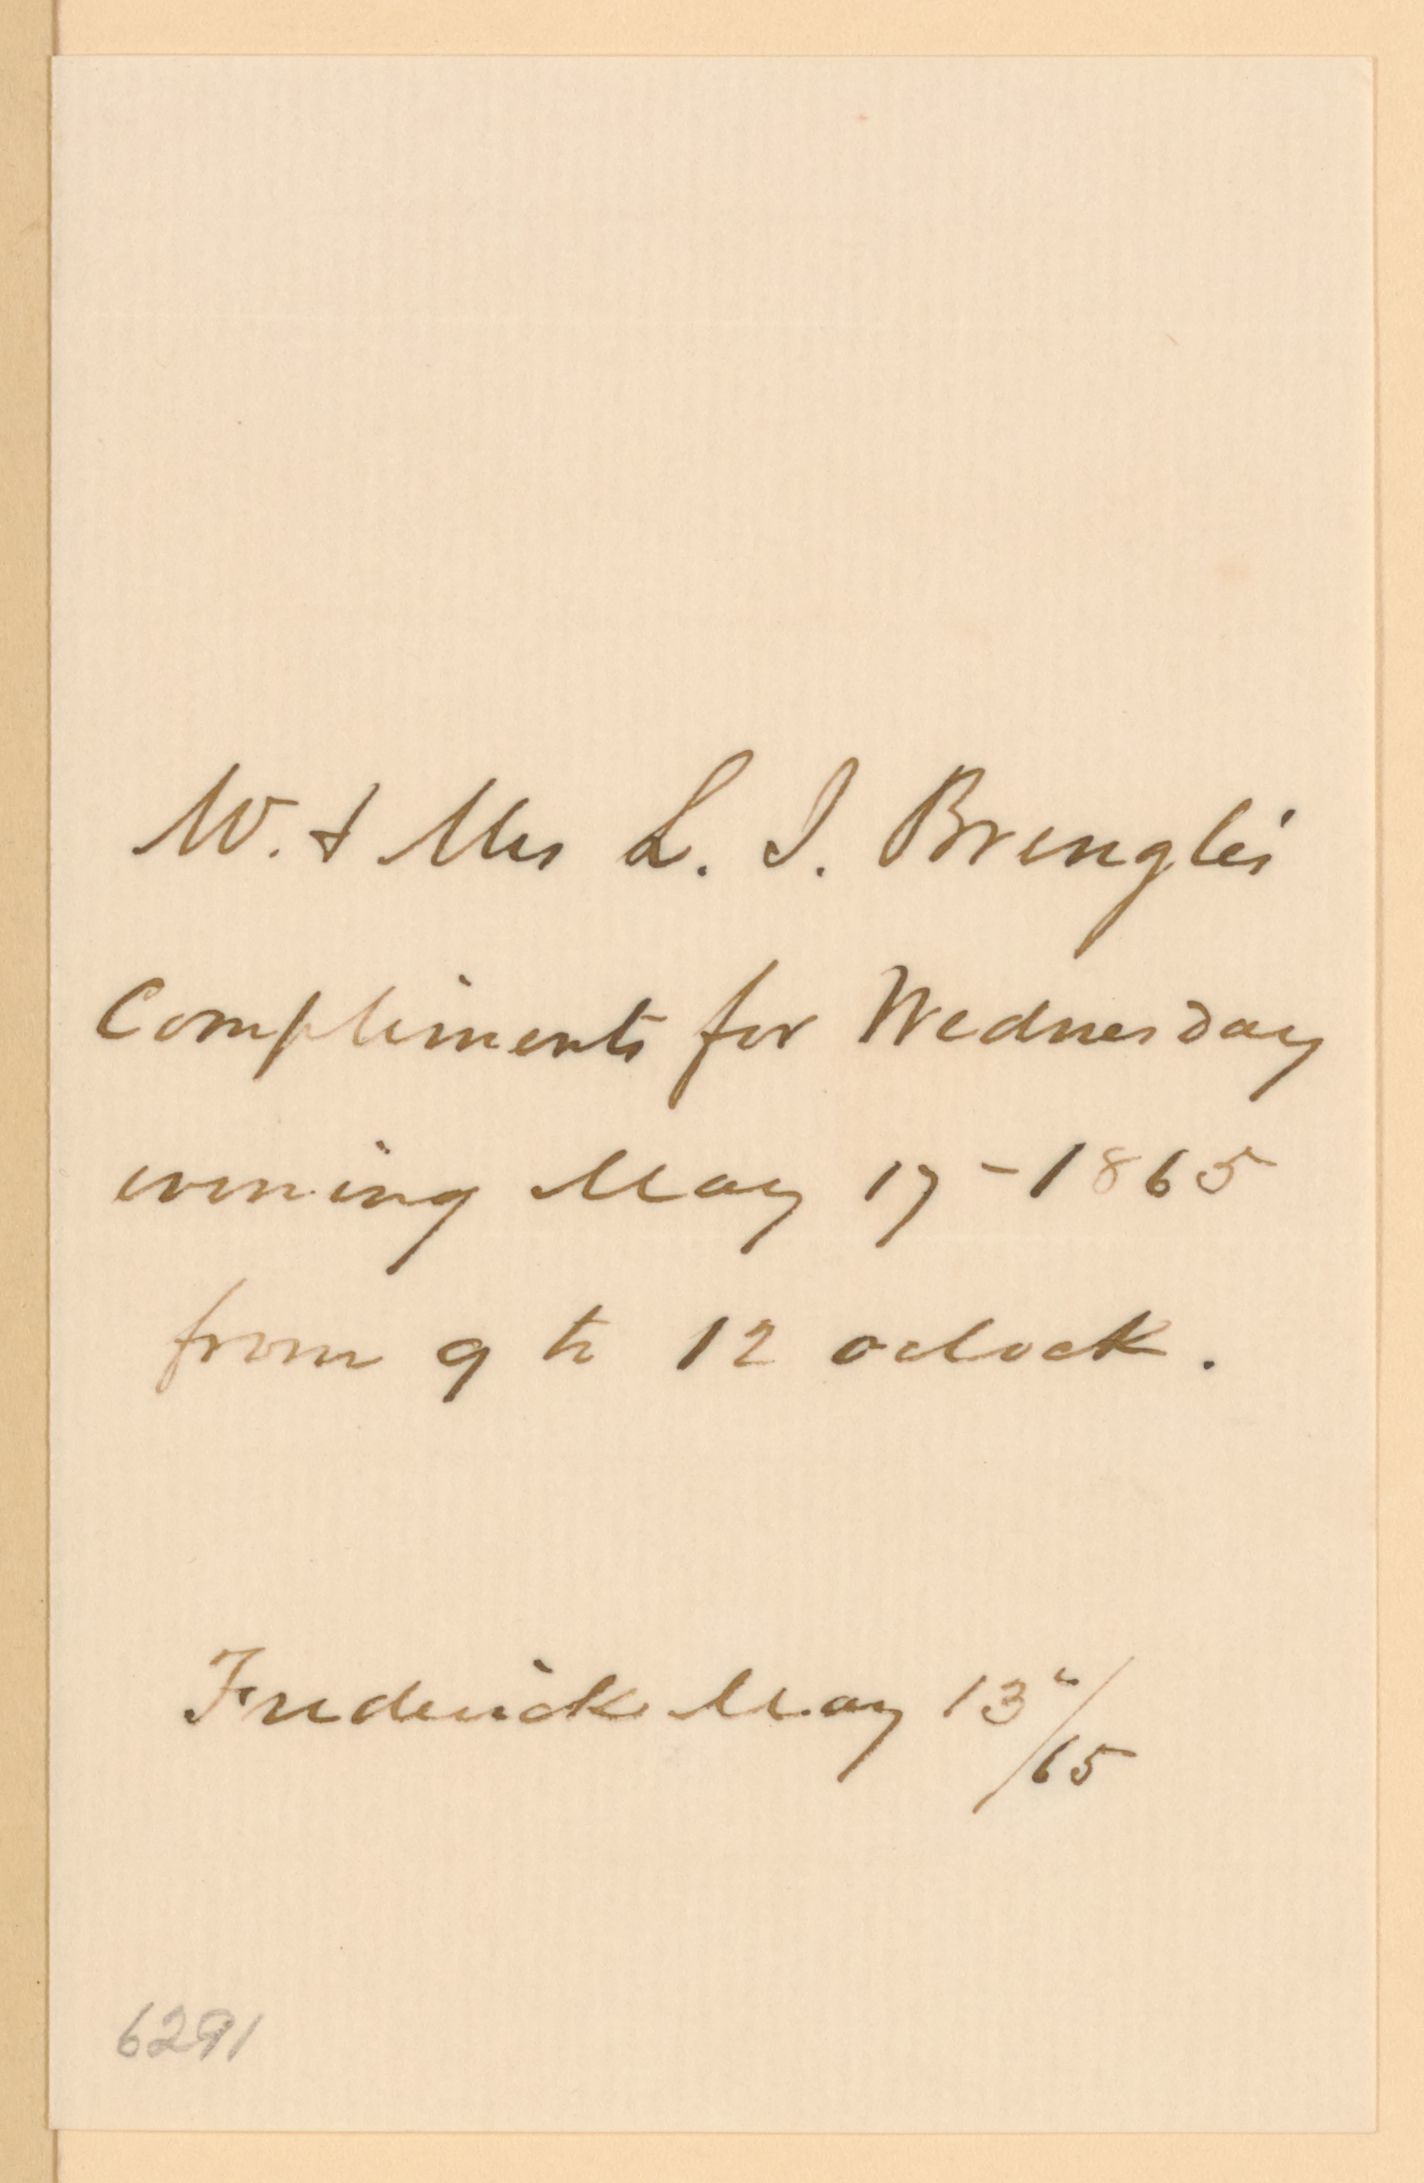 Mr. & Mrs L. J. Brengle's
Compliments for Wednesday
evening May 17 - 1865
from 9 to 12 oclock.
Frederick May 13"/65
6291